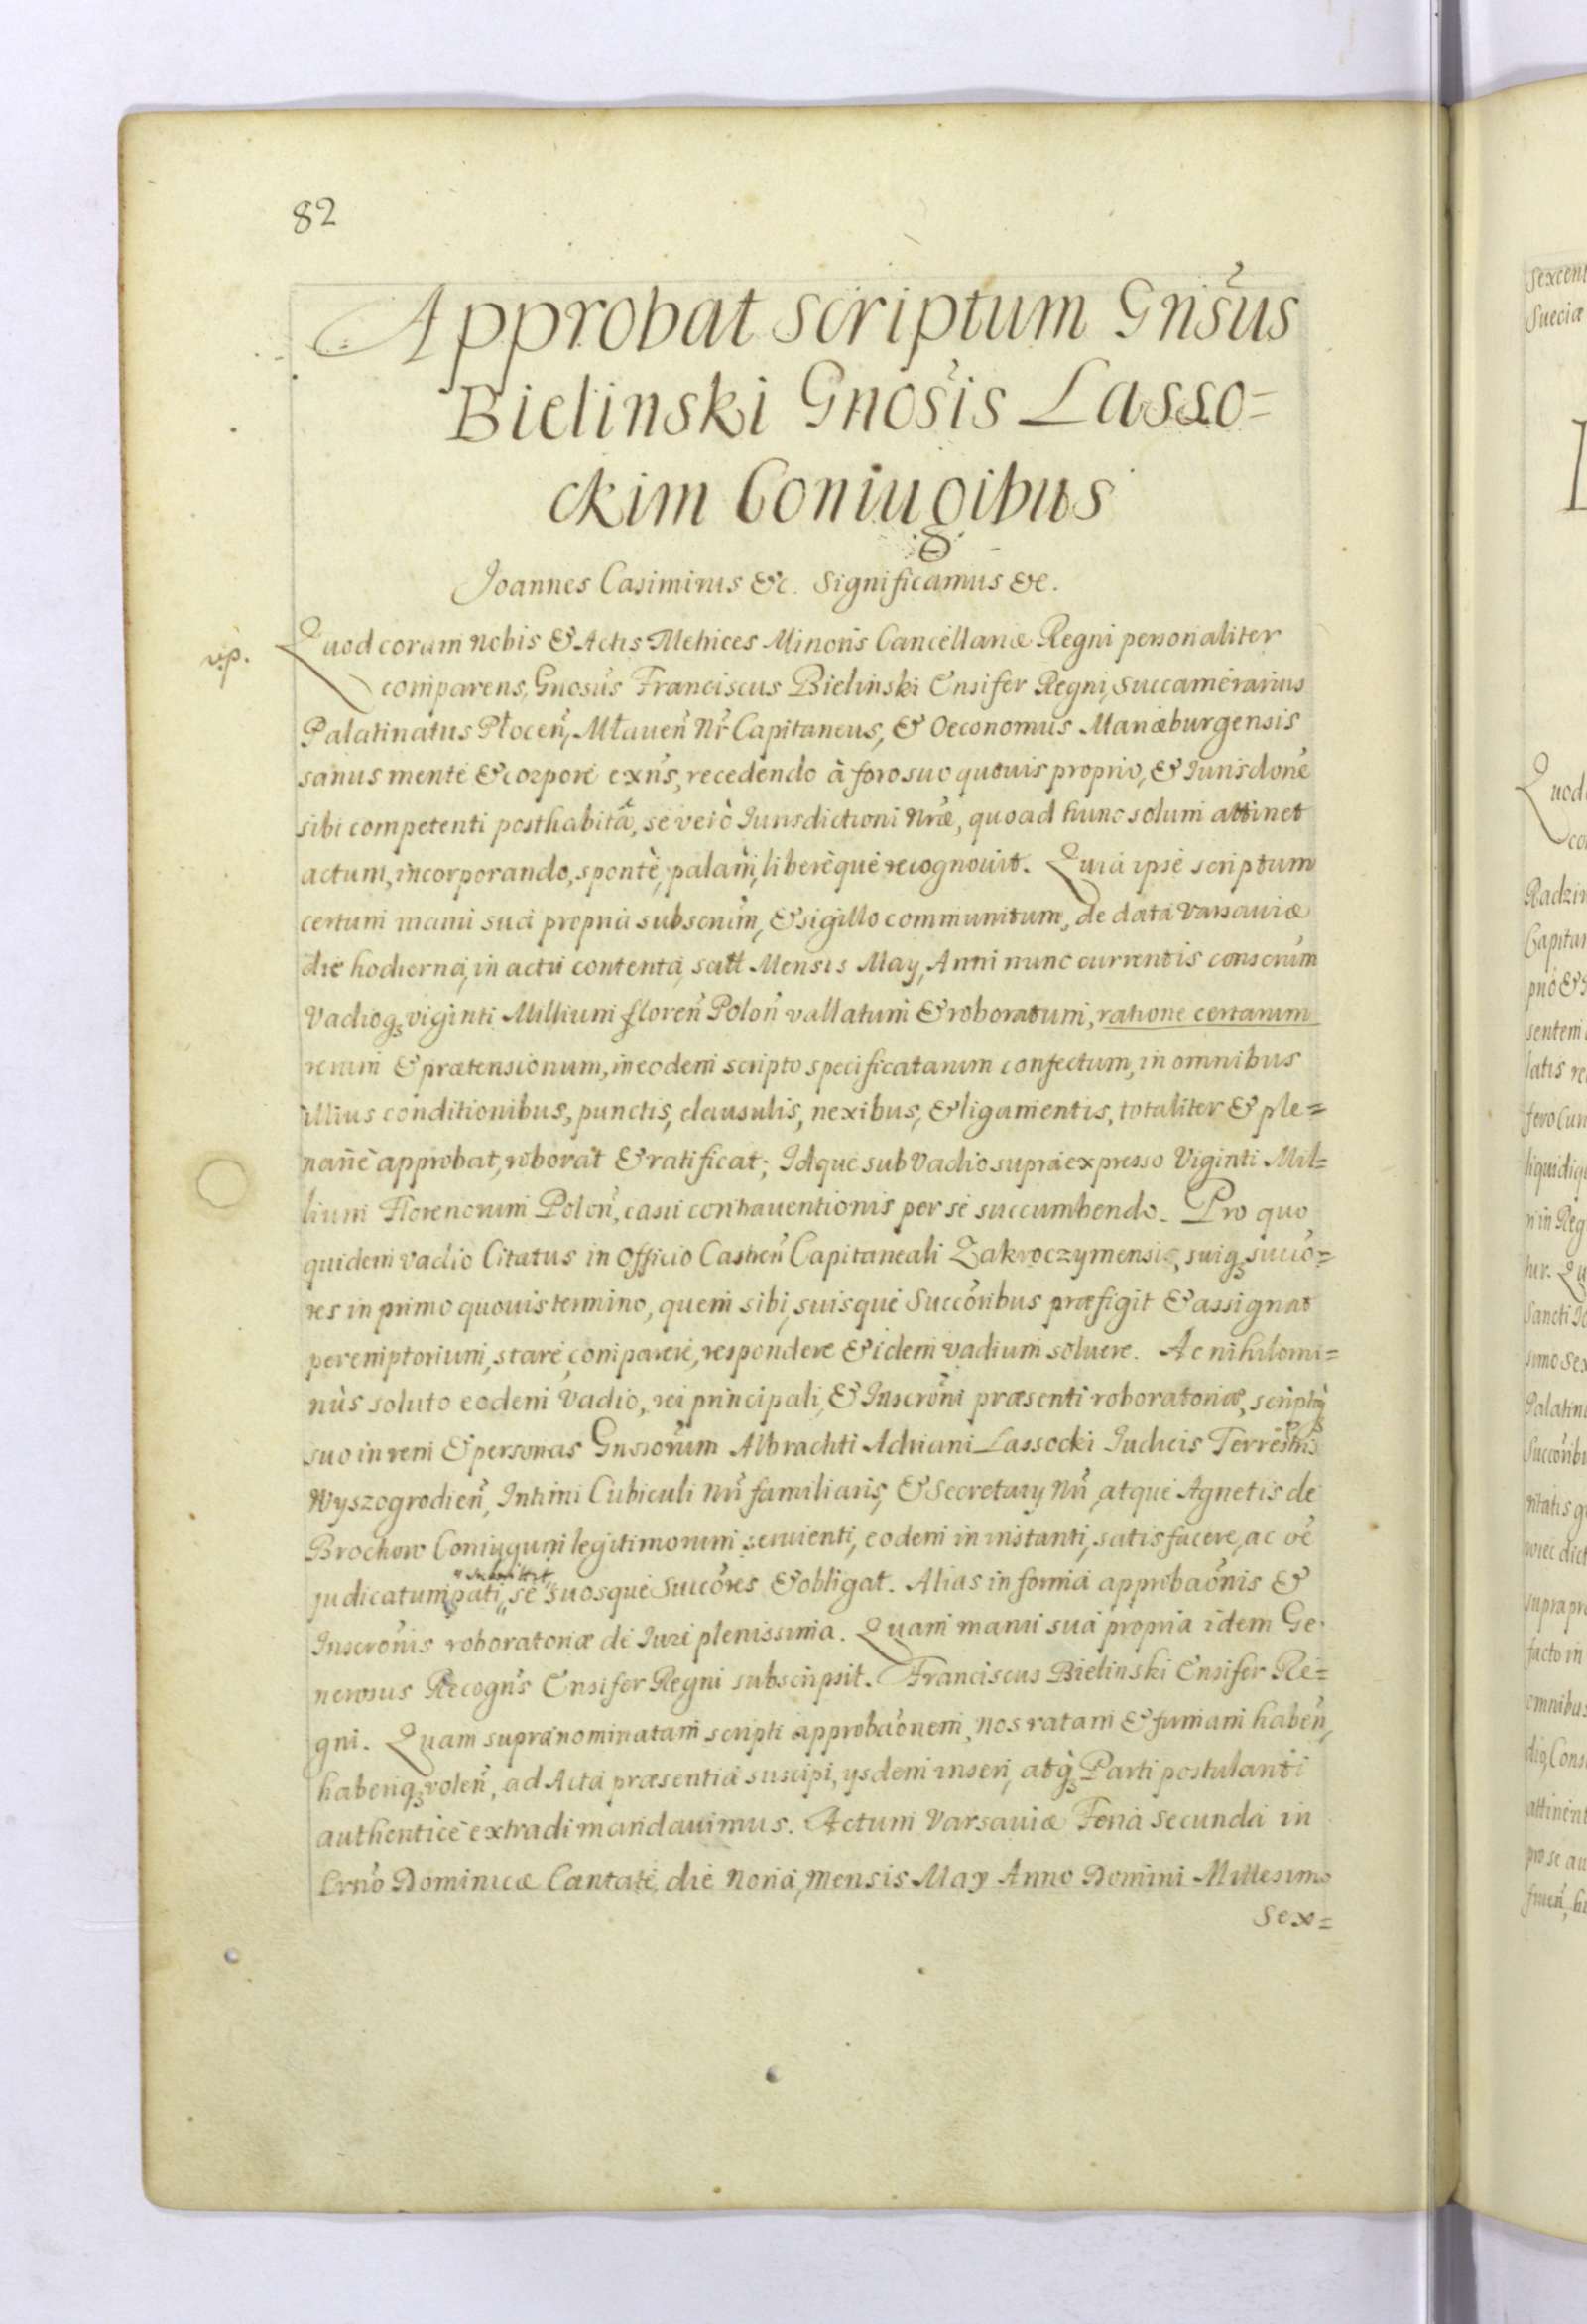 82
Approbat scriptum Gnsus
Bielinski Gnosis Lasso=
ckim Coniugibus
Joannes Casimirus &c. Significamus &c.
Quod coram nobis & Actis Metrices Minoris Cancellariæ Regni personaliter
comparens, Gnosus Franciscus Bielinski Ensifer Regni, Succamerarius
Palatinatus Płocen, Mławen Nr Capitaneus, & Oeconomus Mariæburgensis
sanus mente & corpore exns, recedendo à foro suo quovis proprio, & Jurisdone
sibi competenti posthabitâ, se verò Jurisdictioni Nræ, quoad hunc solum attinet
actum, incorporando, spontè, palam, liberèque recognovit. Quia ipse scriptum
certum manu sua propria subscrum, & sigillo communitum, de data Varsaviæ
die hodierna, in actu contenta, satt Mensis May, Anni nunc currentis conscrum
Vadioq viginti Millium floren Polon vallatum & roboratum, ratione certarum
rerum & prætensionum, in eodem scripto specificatarum confectum, in omnibus
illius conditionibus, punctis, clausulis, nexibus, & ligamentis, totaliter & ple=
narie approbat, roborat & ratificat; Idque sub Vadio supra expresso Viginti Mil=
lium Florenorum Polon, casu contraventionis per se succumbendo. Pro quo
quidem vadio Citatus in Officio Castren Capitaneali Zakroczymensi, suiq succo=
res in primo quovis termino, quem sibi, suisque Succoribus præfigit & assignat
peremptorium, stare, comparere, respondere & idem vadium solvere. Ac nihilomi=
nùs soluto eodem Vadio, rei principali, & Inscroni præsenti roboratoriæ, scriptoq
suo in rem & personas Gnsorum Albrachti Adriani Lassocki Judicis Terrestris
Wyszogrodien, Intimi Cubiculi Nri familiaris, & Secretary Nri, atque Agnetis de
Brochow Coniugum legitimorum servienti, eodem in instanti, satisfacere, ac re
submittit
judicatum pati " se " suosque Succores & obligat. Alias in forma approbaonis &
Inscronis roboratoriæ de Jure plenissima. Quam manu sua propria idem Ge-
nerosus Recogns Ensifer Regni subscripsit. Franciscus Bielinski Ensifer Re=
gni. Quam supranominatam scripti approbaonem, nos ratam & firmam haben,
haberiq volen, ad Acta præsentia suscipi, ysdem inseri, atq Parti postulanti
authenticè extradi mandavimus. Actum Varsaviæ Feria Secunda in
Crno Dominicæ Cantate, die Nona, mensis May Anno Domini Millesimo
Sex=